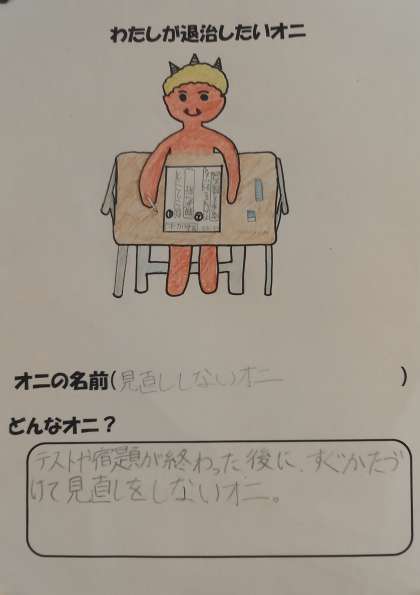 わたしが退治したいオニ
オニの名前(見直ししないオニ)
どんなオニ?
テストや宿題が終わった後に、すぐかたづ
けて見直しをしないオニ。